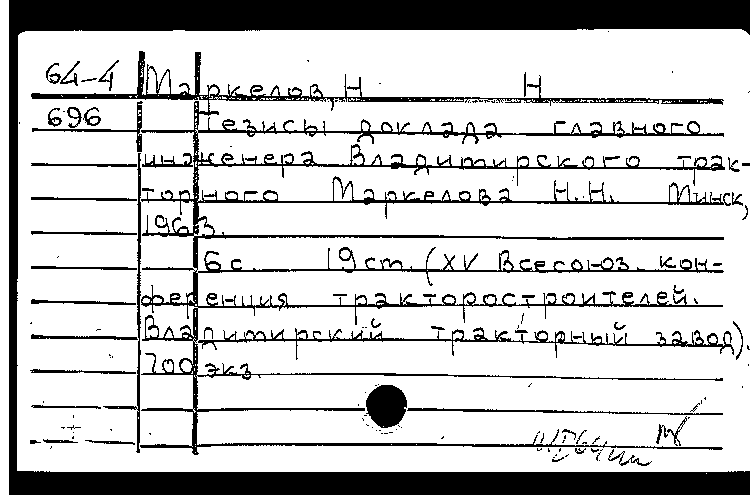 64-4 Маркелов, Н Н
696 Тезисы доклада главного
инженера Владимирского трак-
торного Маркелова Н.Н. Минск,
1963.
6 с. 19 ст. (XV Всесоюз. кон-
ференция тракторостроителей.
Владимирский тракторный завод).
700 экз.